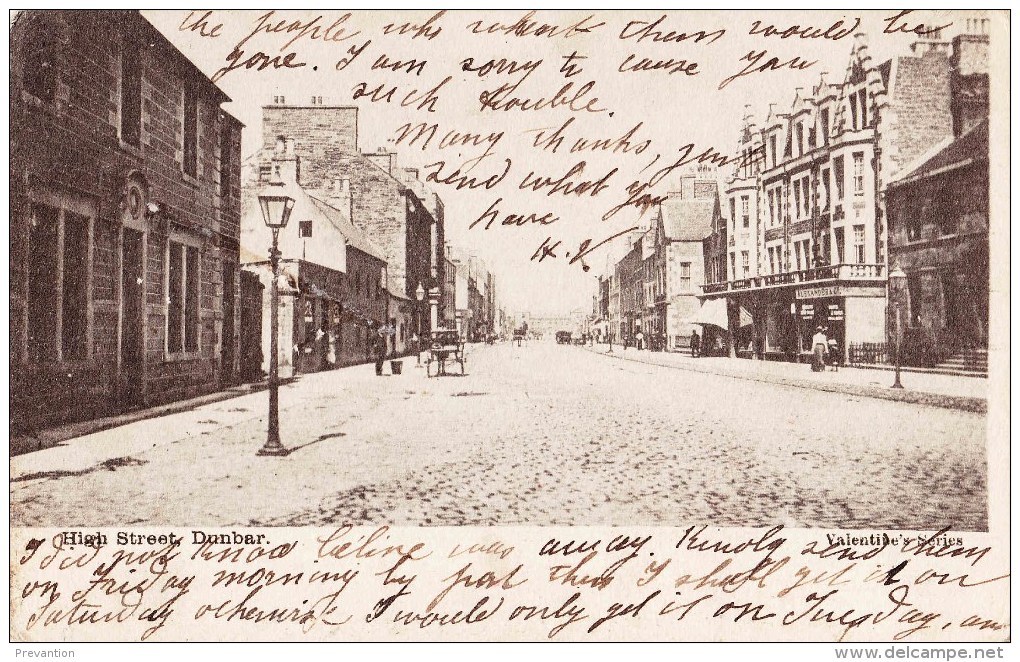 the people who want them would be
gone. I am sorry to cause you
such trouble.
Many thanks, you
send what you
have
H. V.
ALEXANDER
High Street, Dunbar.
Valentine's Series
I did not know Céline was away. Kindly send them
on Friday morning by post then I shall get it on
Saturday otherwise I would only get it on Tuesday, and
Prevantion
www.delcampe.net